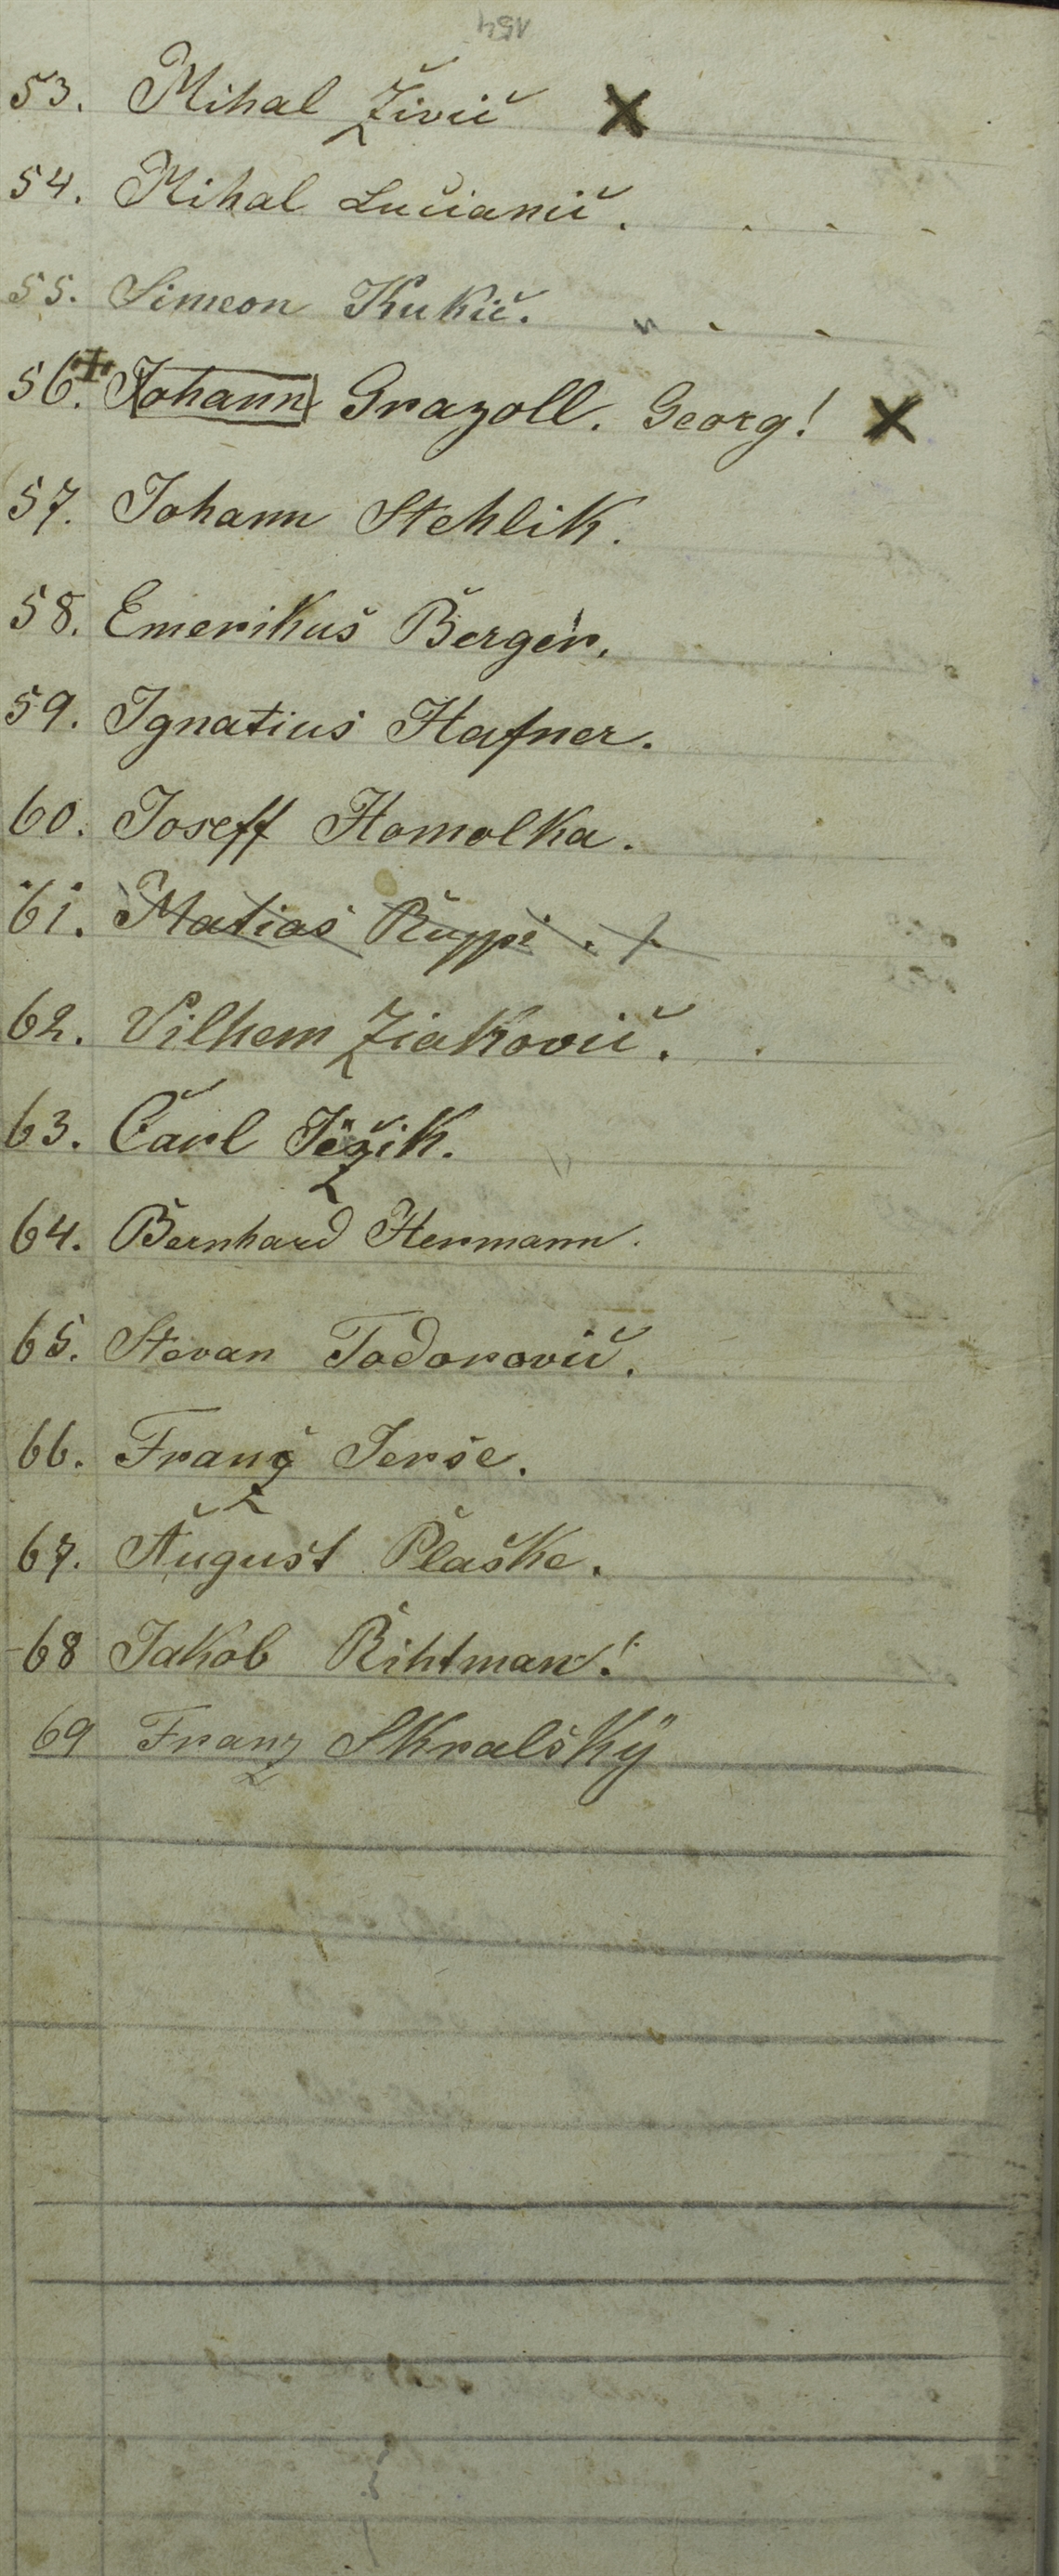 154
53. Mihal Živič X
54. Mihal Lučianič.
55. Simeon Kukič.
56. + Johann Grazoll. Georg! X
57. Johann Stehlik.
58. Emerikuš Berger.
59. Ignatius Hafner.
60. Joseff Homolka.
61. Matias Ruppi.
62. Vilhem Ziakovič.
63. Čarl Ježik.
64. Bernhard Hermann.
65. Stevan Todorovič.
66. Franz Jerše.
67. August Plaške.
68 Jakob Rihtman!
69 Franz Skralskÿ